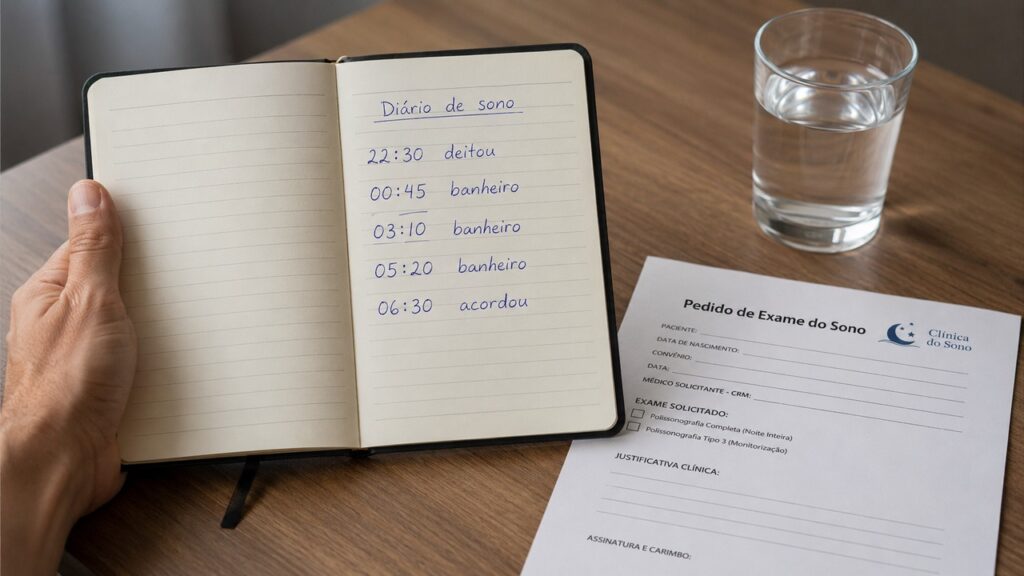 Diário de sono
22:30 deitou
00:45 banheiro
03:10 banheiro
05:20 banheiro
06:30 acordou
Pedido de Exame do Sono
Clínica
do Sono
PACIENTE:
DATA DE NASCIMENTO:
CONVÊNIO:
DATA:
MÉDICO SOLICITANTE - CRM:
EXAME SOLICITADO:
Polissonografia Completa (Noite Inteira)
Polissonografia Tipo 3 (Monitorização)
JUSTIFICATIVA CLÍNICA:
ASSINATURA E CARIMBO: